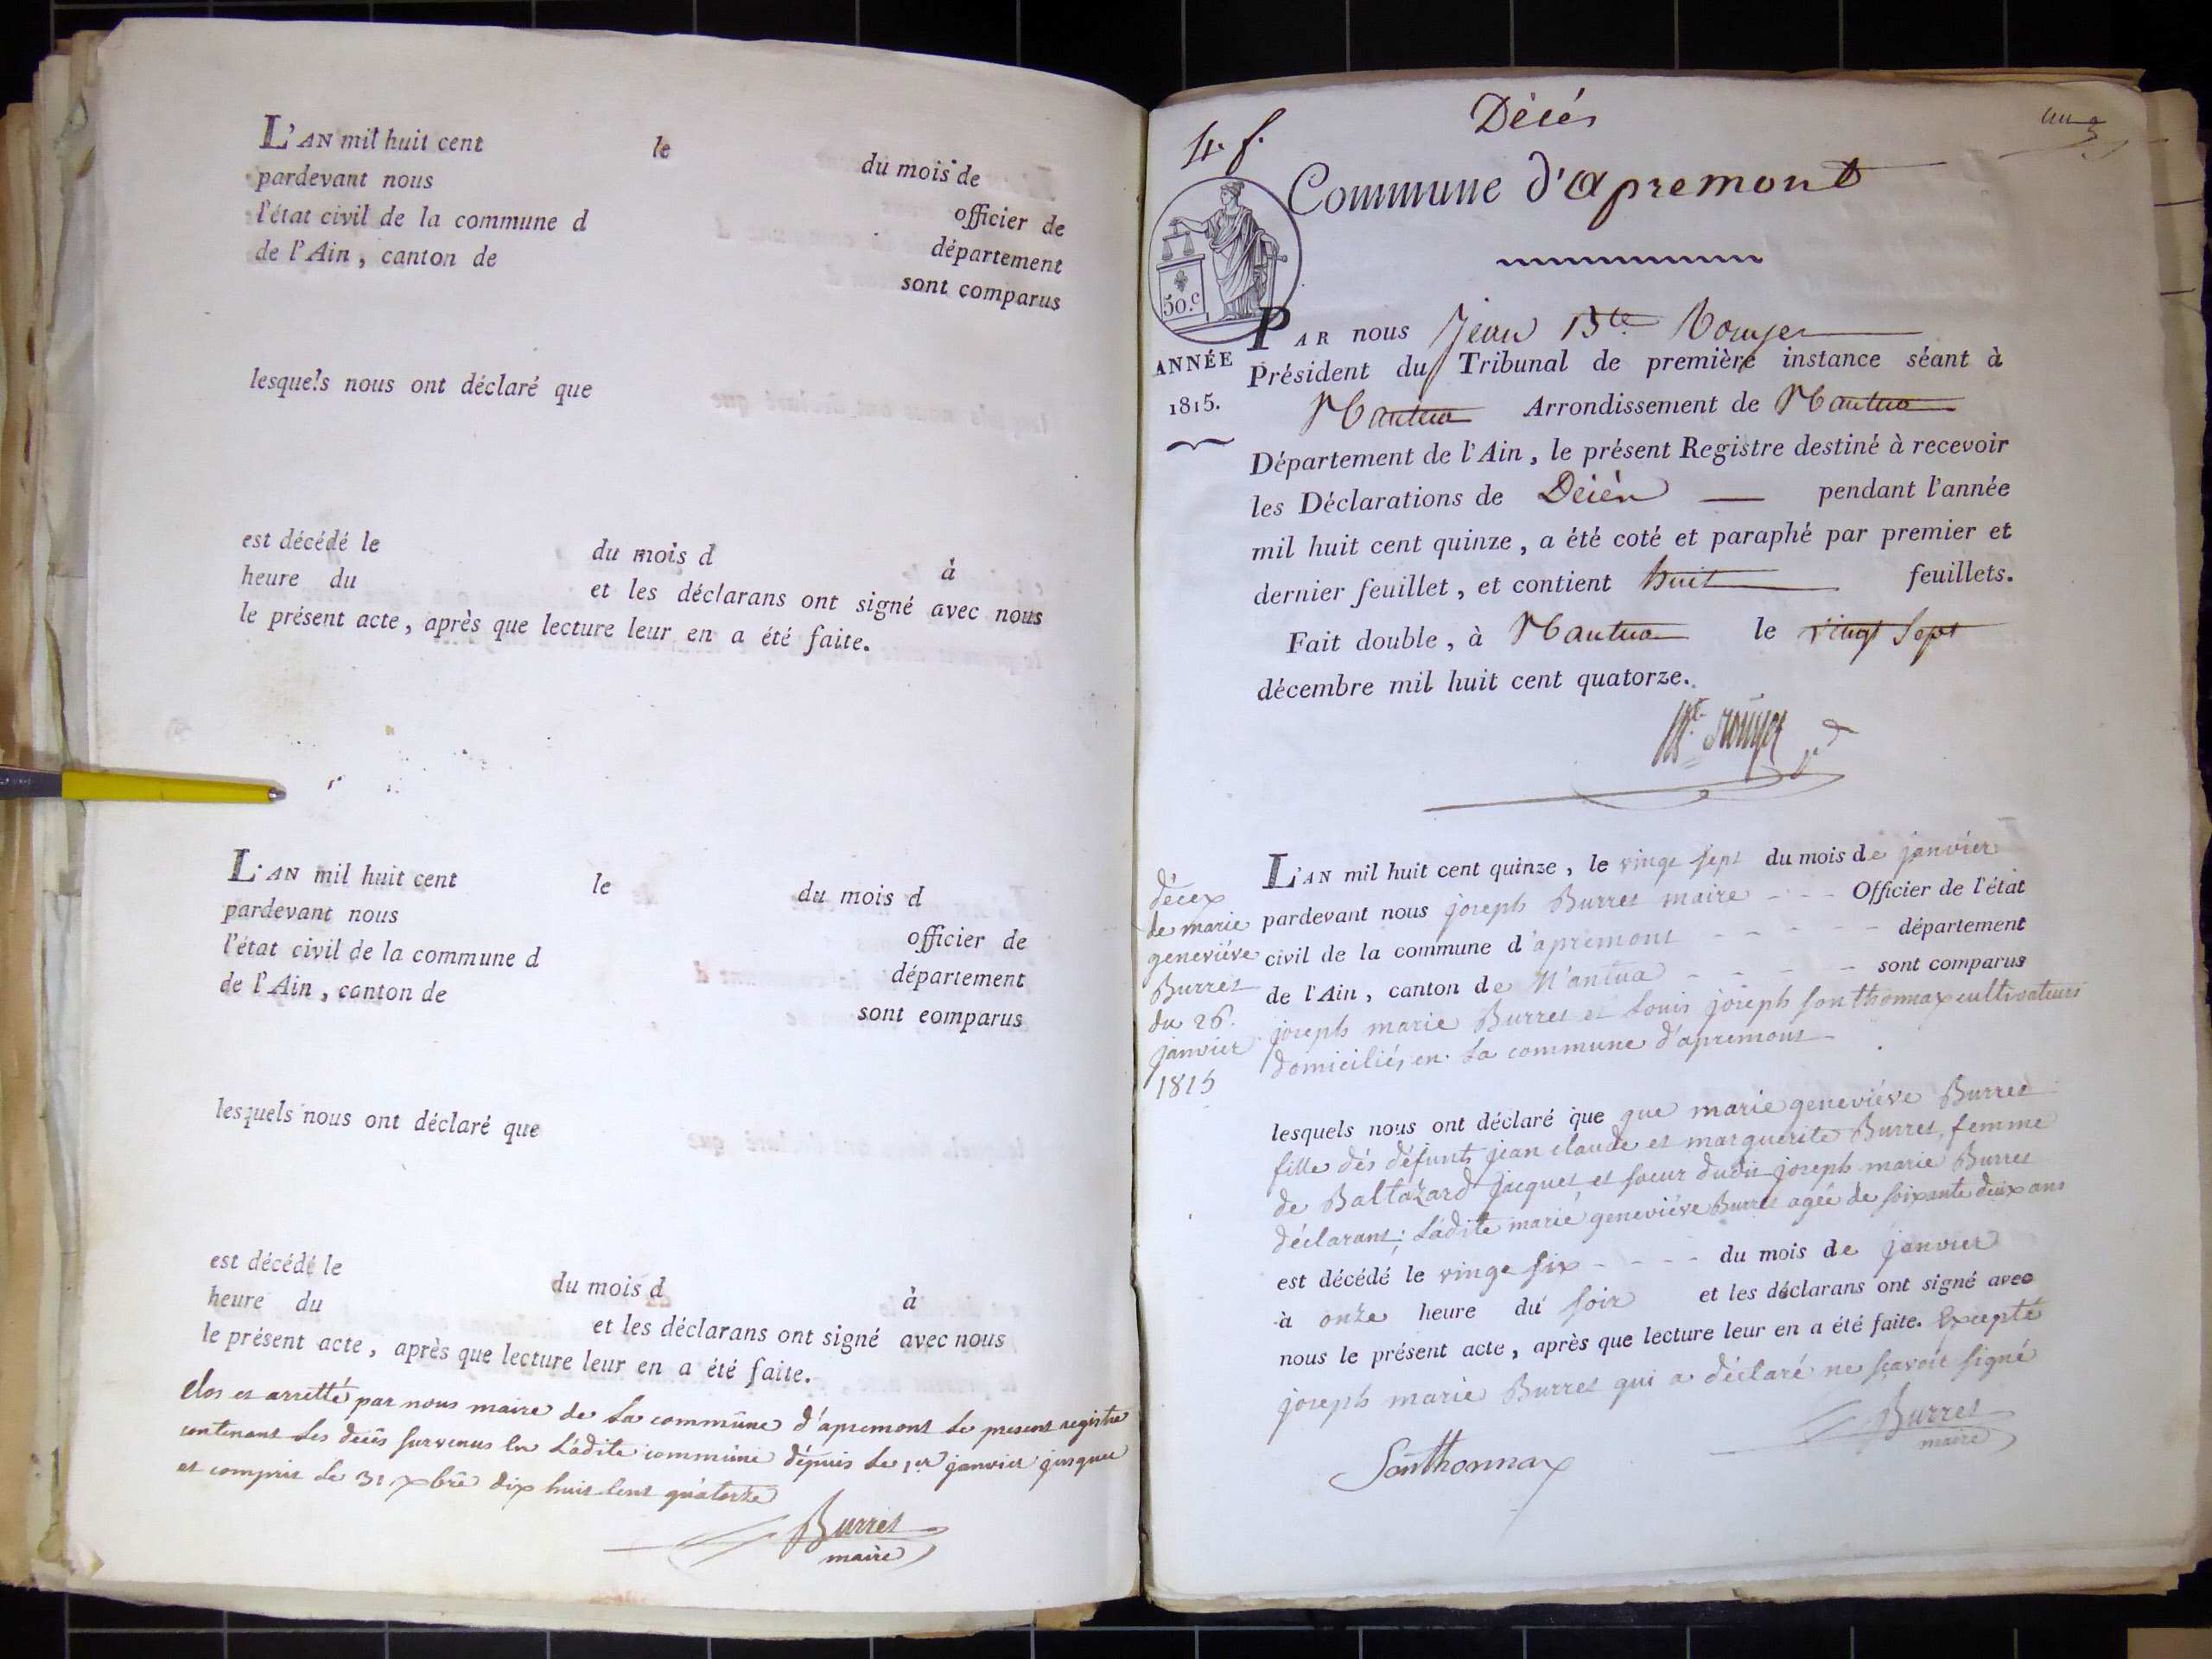 L'AN mil huit cent le du mois de
pardevant nous officier de
l'état civil de la commune d département
de l'Ain, canton de sont comparus
lesquels nous ont déclaré que
est décédé le du mois d à
heure du et les déclarans ont signé avec nous
le présent acte, après que lecture leur en a été faite.
L'AN mil huit cent le du mois d
pardevant nous officier de
l'état civil de la commune d département
de l'Ain, canton de sont comparus
lesquels nous ont déclaré que
est décédé le du mois d à
heure du et les déclarans ont signé avec nous
le présent acte, après que lecture leur en a été faite.
Clos et arretté par nous maire de La commune d'apremont Le present registre
contenant Les decès survenus en Ladite commune dépuis Le 1er janvier jusques
et compris Le 31 xbre dix huit cent quatorze
Burret
maire
4. f.
Décés
Commune d'apremont
50.c
ANNÉE
1815.
PAR nous Jean Bte Rouyer
Président du Tribunal de première instance séant à
Nantua Arrondissement de Nantua
Département de l'Ain, le présent Registre destiné à recevoir
les Déclarations de Décès pendant l'année
mil huit cent quinze, a été coté et paraphé par premier et
dernier feuillet, et contient huit feuillets.
Fait double, à Nantua le vingt sept
décembre mil huit cent quatorze.
Rouyer
décex
de marie
geneviéve
Burret
du 26.
janvier
1815
L'AN mil huit cent quinze, le vingt sept du mois de janvier
pardevant nous joseph Burret maire Officier de l'état
civil de la commune d'apremont département
de l'Ain, canton de N'antua sont comparus
joseph marie Burret et Louis joseph Sonthonnax cultivateurs
domiciliés en La commune d'apremont
lesquels nous ont déclaré que que marie geneviéve Burret
fille dés défunts jean claude et marguerite Burret, femme
de Baltazard Jacquet et soeur dudit joseph marie Burret
déclarant; Ladite marie geneviéve Burret agée de soixante deux ans
est décédé le vingt six du mois de janvier
à onze heure du soir et les déclarans ont signé avec
nous le présent acte, après que lecture leur en a été faite. Excepté
joseph marie Burret qui a déclaré ne sçavoir signé
Burret
maire
Sonthonnax